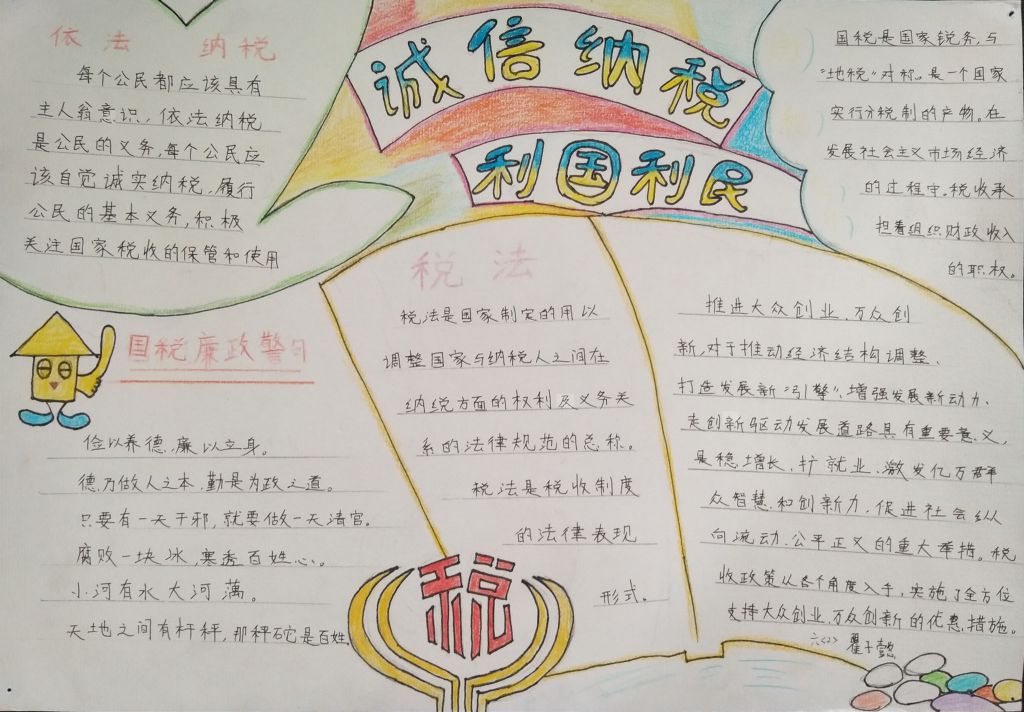 诚信纳税
利国利民
依法 纳税
每个公民都应该具有
主人翁意识，依法纳税
是公民的义务，每个公民应
该自觉诚实纳税，履行
公民的基本义务，积极
关注国家税收的保管和使用
国税是国家税务，与
“地税”对称。是一个国家
实行分税制的产物。在
发展社会主义市场经济
的过程守，税收承
担着组织财政收入
的职权。
国税廉政警句
俭以养德，廉以立身。
德乃做人之本，勤是为政之道。
只要有一天干邪，就要做一天清官。
腐败一块冰，寒透百姓心。
小河有水大河满。
天地之间有杆秤，那秤砣是百姓
税法
税法是国家制定的用以
调整国家与纳税人之间在
纳税方面的权利及义务关
系的法律规范的总称。
税法是税收制度
的法律表现
形式。
推进大众创业，万众创
新，对于推动经济结构调整、
打造发展新“引擎”、增强发展新动力、
走创新驱动发展道路具有重要意义，
是稳增长、扩就业、激发亿万群
众智慧和创新力，促进社会纵
向流动、公平正义的重大举措。税
收政策从各个角度入手，实施了全方位
支持大众创业，万众创新的优惠措施。
六<2>
税